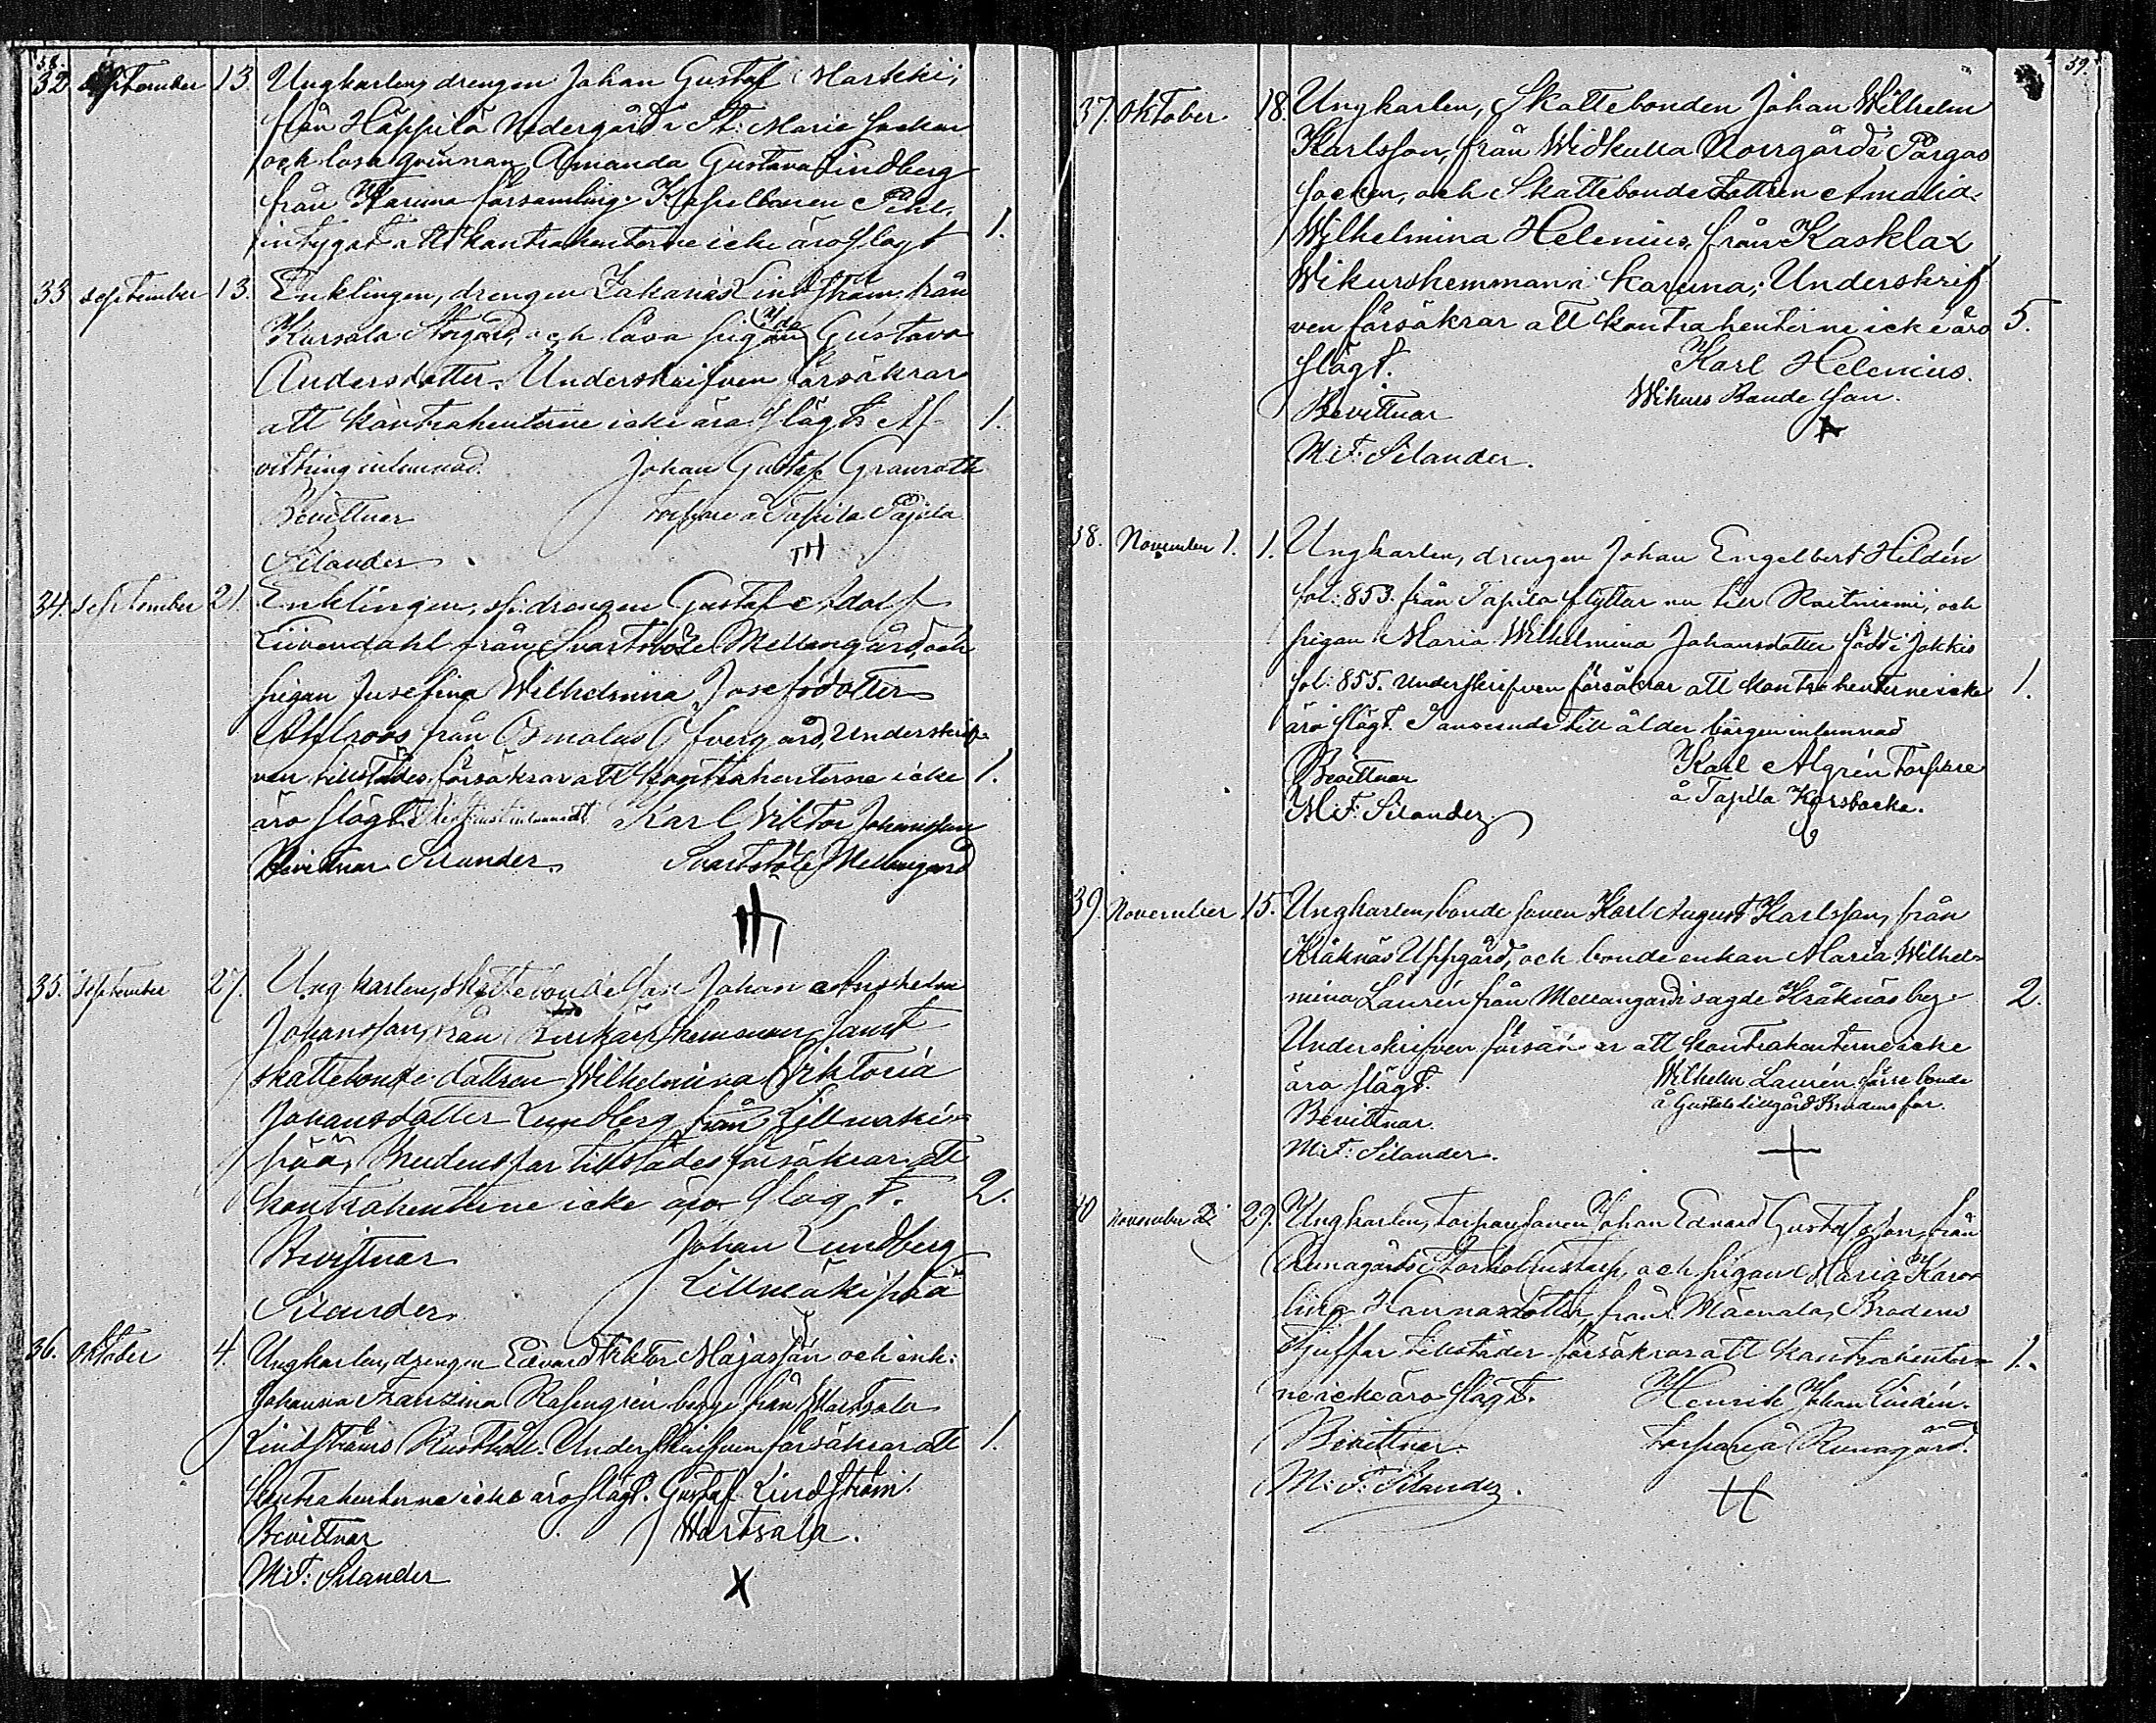 58.
32 September 13. Ungkarlen, drengen Johan Gustaf Markki,
från Häppilä Nedergård i St: Marie socken
och lösa qvinnan Amanda Gustava Lindberg
från Karuna församling. Kapellanen Pihl.
intygat att kontrahenterne icke äro slägt 1.
33 September 13. Enklingen, drengen Zakarias Lindström från
Karsala Storgård, och lösa pigan Gustava
Andersdotter. Underskrifven försäkrar
att kontrahenterne icke äro slägt. Af 1.
vittring inlemnad. Johan Gustaf Granroth
Bevittnar Torpare å Tapila
Silander TH
34. September 21. Enklingen, drengen Gustaf Adolf
Liivendahl från Svartstöle Mellangård, och
pigan Josefina Wilhelmina Josefsdotter
Ahlroos från Öfvergård, Underskrif-
ven tillstädes försäkrar att kontrahenterne icke 1.
äro slägt. Karl Viktor Johansson
Bevittnar Silander. Svartstöle Mellangård
35. September 27. Ungkarlen, skattebondeson Johan Anshelm
Johansson, från hemman, samt
skattebonde dottren Wilhelmina Viktoria
Johansdotter Lundberg från Lillmäki-
pää, Brudens far tillstädes försäkrar att
kontrahenterne icke äro slägt. 2.
Bevittnar Johan Lundberg
Silander Lillmäkipää
36. Oktober 4. Ungkarlen, drengen Edvard Viktor Majasson och enk:
Johanna Franzina Rosengrén begge från Wartsala
Lindströms Rusthåll. Underskrifven försäkrar att 1.
kontrahenterne icke äro slägt. Gustaf Lindström.
Bevittnar Wartsala.
M:F: Silander X
39.
37. Oktober. 18. Ungkarlen, Skattebonden Johan Wilhelm
Karlsson, från Widkulla Norrgård i Pargas
socken, och Skattebondedottren Amalia
Wilhelmina Helenius, från Kasklax
Wikurshemman i Karuna; Underskrif
ven försäkrar att kontrahenterne icke äro 5.
slägt. Karl Helenius.
Bevittnar Wikurs Bonde Son.
M:F: Silander.
38. November 1. 1. Ungkarlen, drengen Johan Engelbert Hildén
fol: 853. från Tapila flyttar nu till Raitniemi, och
pigan Maria Wilhelmina Johansdotter född i Jokkis
fol: 855. Underskrifven försäkrar att kontrahenterne icke 1.
äro slägt. I anseende till ålder borgen inlemnad
Bevittnar Karl Algrén Torpare
M:F: Silander å Tapila Korsbacka.
39. November 15. Ungkarlen, bonde sonen Karl August Karlsson, från
Kråknäs Uppgård, och bonde enkan Maria Wilhel-
mina Laurén från Mellangård i sagde Kråknäs by. 2.
Underskrifven försäkrar att kontrahenterne icke
äro slägt. Wilhelm Laurén förre bonde
Bevittnar. å Lillgård Brudens far.
M:F: Silander.
40 November 29. Ungkarlen, torparesonen Johan Eduard Gustafsson, från
Runagårds Storholmstorp, och pigan Maria Karo-
lina Hannasdotter, från Brudens
Stjuffar tillstädes försäkrar att kontrahenter- 1.
ne icke äro slägt. Henrik Johan Lindén.
Bevittnar. Torpare å Runagård.
M:F: Silander.